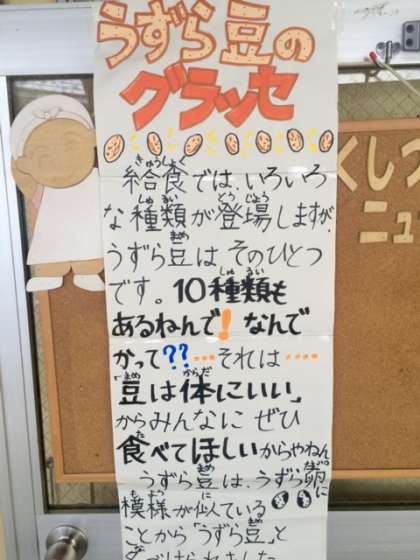 うずら豆の
グラッセ
給食では、いろいろ
な種類が登場しますが、
うずら豆は そのひとつ
です。10種類も
あるねんで！なんで
かって??…それは…
「豆は体にいい」
からみんなに ぜひ
食べてほしいからやねん。
うずら豆は、うずら卵に
模様が似ている
ことから「うずら豆」と
くしつ
ニュ